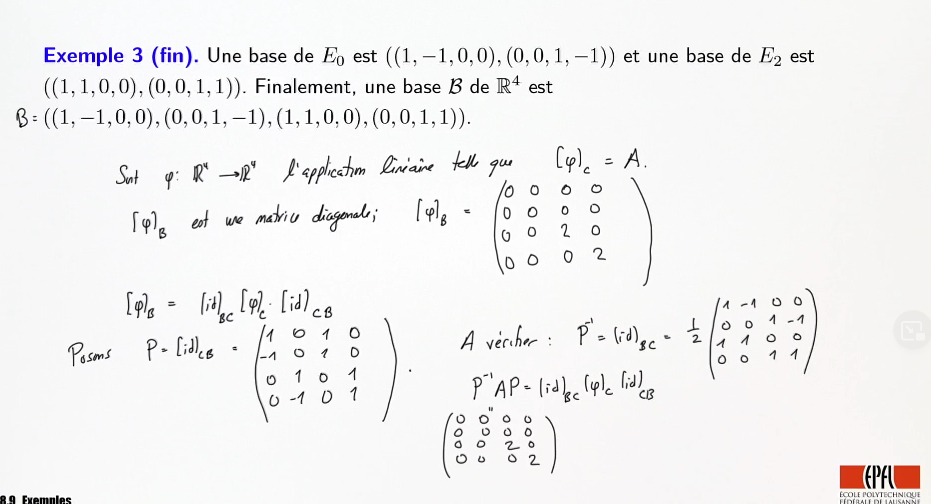 Exemple 3 (fin). Une base de E₀ est ((1, −1, 0, 0), (0, 0, 1, −1)) et une base de E₂ est
((1, 1, 0, 0), (0, 0, 1, 1)). Finalement, une base ℬ de ℝ⁴ est
B = ((1, −1, 0, 0), (0, 0, 1, −1), (1, 1, 0, 0), (0, 0, 1, 1)).
Soit φ: ℝ⁴ → ℝ⁴ l'application linéaire telle que [φ]_C = A.
[φ]_B est une matrice diagonale; [φ]_B =
0 0 0 0
0 0 0 0
0 0 2 0
0 0 0 2
[φ]_B = [id]_BC [φ]_C · [id]_CB
Posons P = [id]_CB =
1 0 1 0
-1 0 1 0
0 1 0 1
0 -1 0 1
.
A vérifier : P⁻¹ = [id]_BC = 1/2
1 -1 0 0
0 0 1 -1
1 1 0 0
0 0 1 1
P⁻¹AP = [id]_BC [φ]_C [id]_CB
"
0 0 0 0
0 0 0 0
0 0 2 0
0 0 0 2
8.9 Exemples
EPFL
ÉCOLE POLYTECHNIQUE
FÉDÉRALE DE LAUSANNE